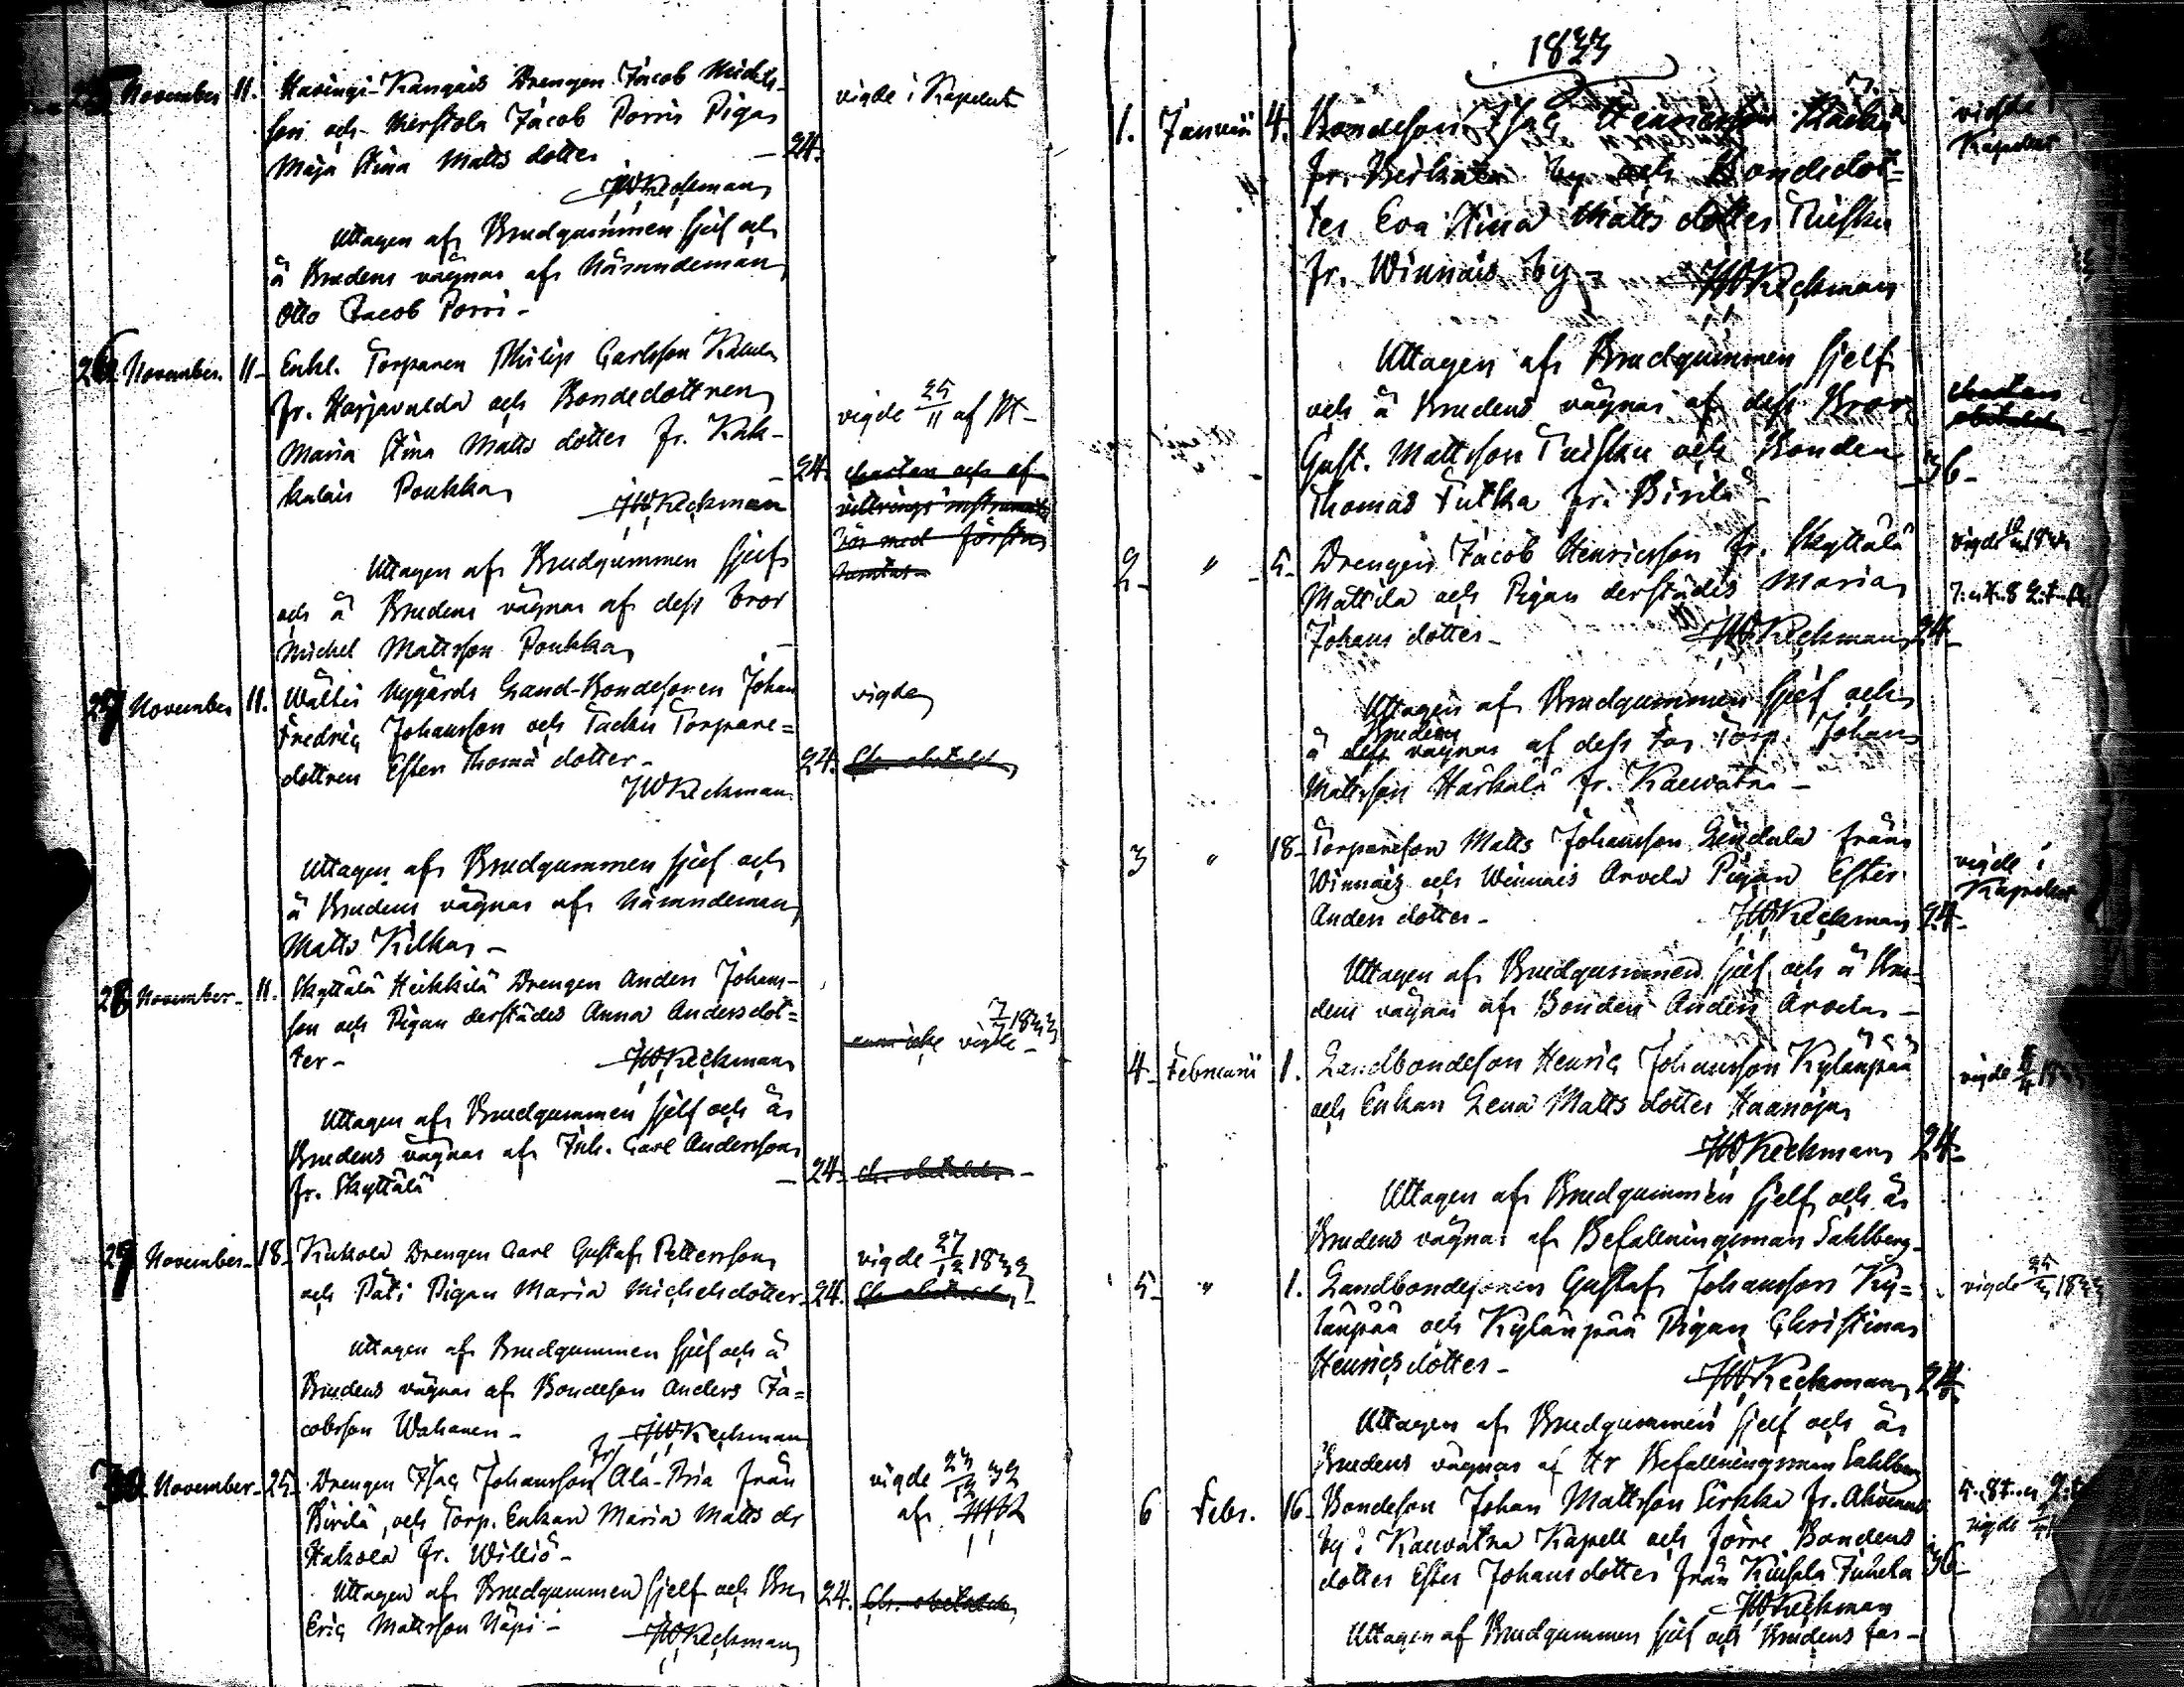 25 November 11. Havingi-Kangais Drengen Jacob Michels- vigde i Kapellet
son och Merstola Jacob Porris Pigan
Maja Stina Matts dotter 24.
JWReckman
Uttagen af Brudgummen sjelf och
å Brudens vägnar af Nämndeman
Otto Jacob Porri -
26 November. 11- Enkl. Torparen Philip Carlsson
fr. Harjavalda och Bondedottren vigde 25/11 af
Maria Stina Matts dotter fr. Kuk-
kulais Poukka 24.
JWReckman
Uttagen af Brudgummen sjelf
och å Brudens vägnar af dess bror
Michel Mattsson Poukka
27 November 11. Wältis Nygårds Land-Bondesonen Johan vigde
Fredric Johansson och Tacku Torpare=
dottren Ester Thomä dotter - 24. Ch. obetald
JWReckman
Uttagen af Brudgummen sjelf och
å Brudens vägnar af Nämndeman
Matts Kilka -
28 November - 11. Skyttälä Heikkilä Drengen Anders Johans-
son och Pigan derstädes Anna Andersdot= vigde 1833
ter - JWReckman
Uttagen af Brudgummen sjelf och å
Brudens vägnar af Inh. Carl Andersson
fr. Skyttälä - 24. ch. obetald -
29 November - 18 - Kukola Drengen Carl Gustaf Pettersson vigde 27/12 1832
och Päti Pigan Maria Michelsdotter - 24. Ch. obetald -
Uttagen af Brudgummen sjelf och å
Brudens vägnar af Bondeson Anders Ja=
cobsson Wahanen - JWReckman
30 November - 25 - Drengen Isac Johansson fr Ala-Pria från vigde 23/12 32
Pirilä, och Torp. Enkan Maria Matts dr af JWR
Hakola fr. Williö -
Uttagen af Brudgummen sjelf och 24. Ch. obetald
Eric Mattsson Näpi - JWReckman
1833
1. Januarii 4. Bondeson Isac Henricsson vigde i
fr. by och Bondedot= Kapellet
ter Eva Stina Matts dotter Tuisku
fr. Winnais by - JWReckman
Uttagen af Brudgummen sjelf
och å Brudens vägnar af dess Bror Chartan
Gust. Mattsson Tuisku och Bonden obetald
Thomas Tutka fr. Pirilä - 36 -
2 - " - 5 - Drengen Jacob Henricsson fr. Skyttälä vigde
Mattila och Pigan derstädes Maria
Johans dotter - JWReckman 24 -
Uttagen af Brudgummen sjelf och
Brudens
å dess vägnar af dess Far Torp. Johan
Mattsson Härkälä fr. Kauvatsa -
3 " 18 - Torpareson Matts Johansson Lindala från vigde i
Winnais och Winnais Arvela Pigan Ester Kapellet
Anders dotter - JWReckman 24 -
Uttagen af Brudgummen sjelf och å Bru-
dens vägnar af Bonden Anders Arvela -
4 - Februarii 1. Landbondeson Henric Johansson Kylänpää vigde
och Enkan Lena Matts dotter Haanoja
JWReckman 24 -
Uttagen af Brudgummen sjelf och å
Brudens vägnar af Befallningsman Sahlberg -
5 - " 1. Landbondesonen Gustaf Johansson Ky= vigde 1833
länpää och Kylänpää Pigan Christina
Henrics dotter - JWReckman 24
Uttagen af Brudgummen sjelf och å
Brudens vägnar af Hr Befallningsman Sahlberg
6 Febr. 16 - Bondeson Johan Mattsson Sirkka fr.
by i Kauvatsa Kapell och förre Bondens vigde
dotter Ester Johans dotter från Juhela 36 -
JWReckman
Uttagen af Brudgummen sjelf och Brudens far -